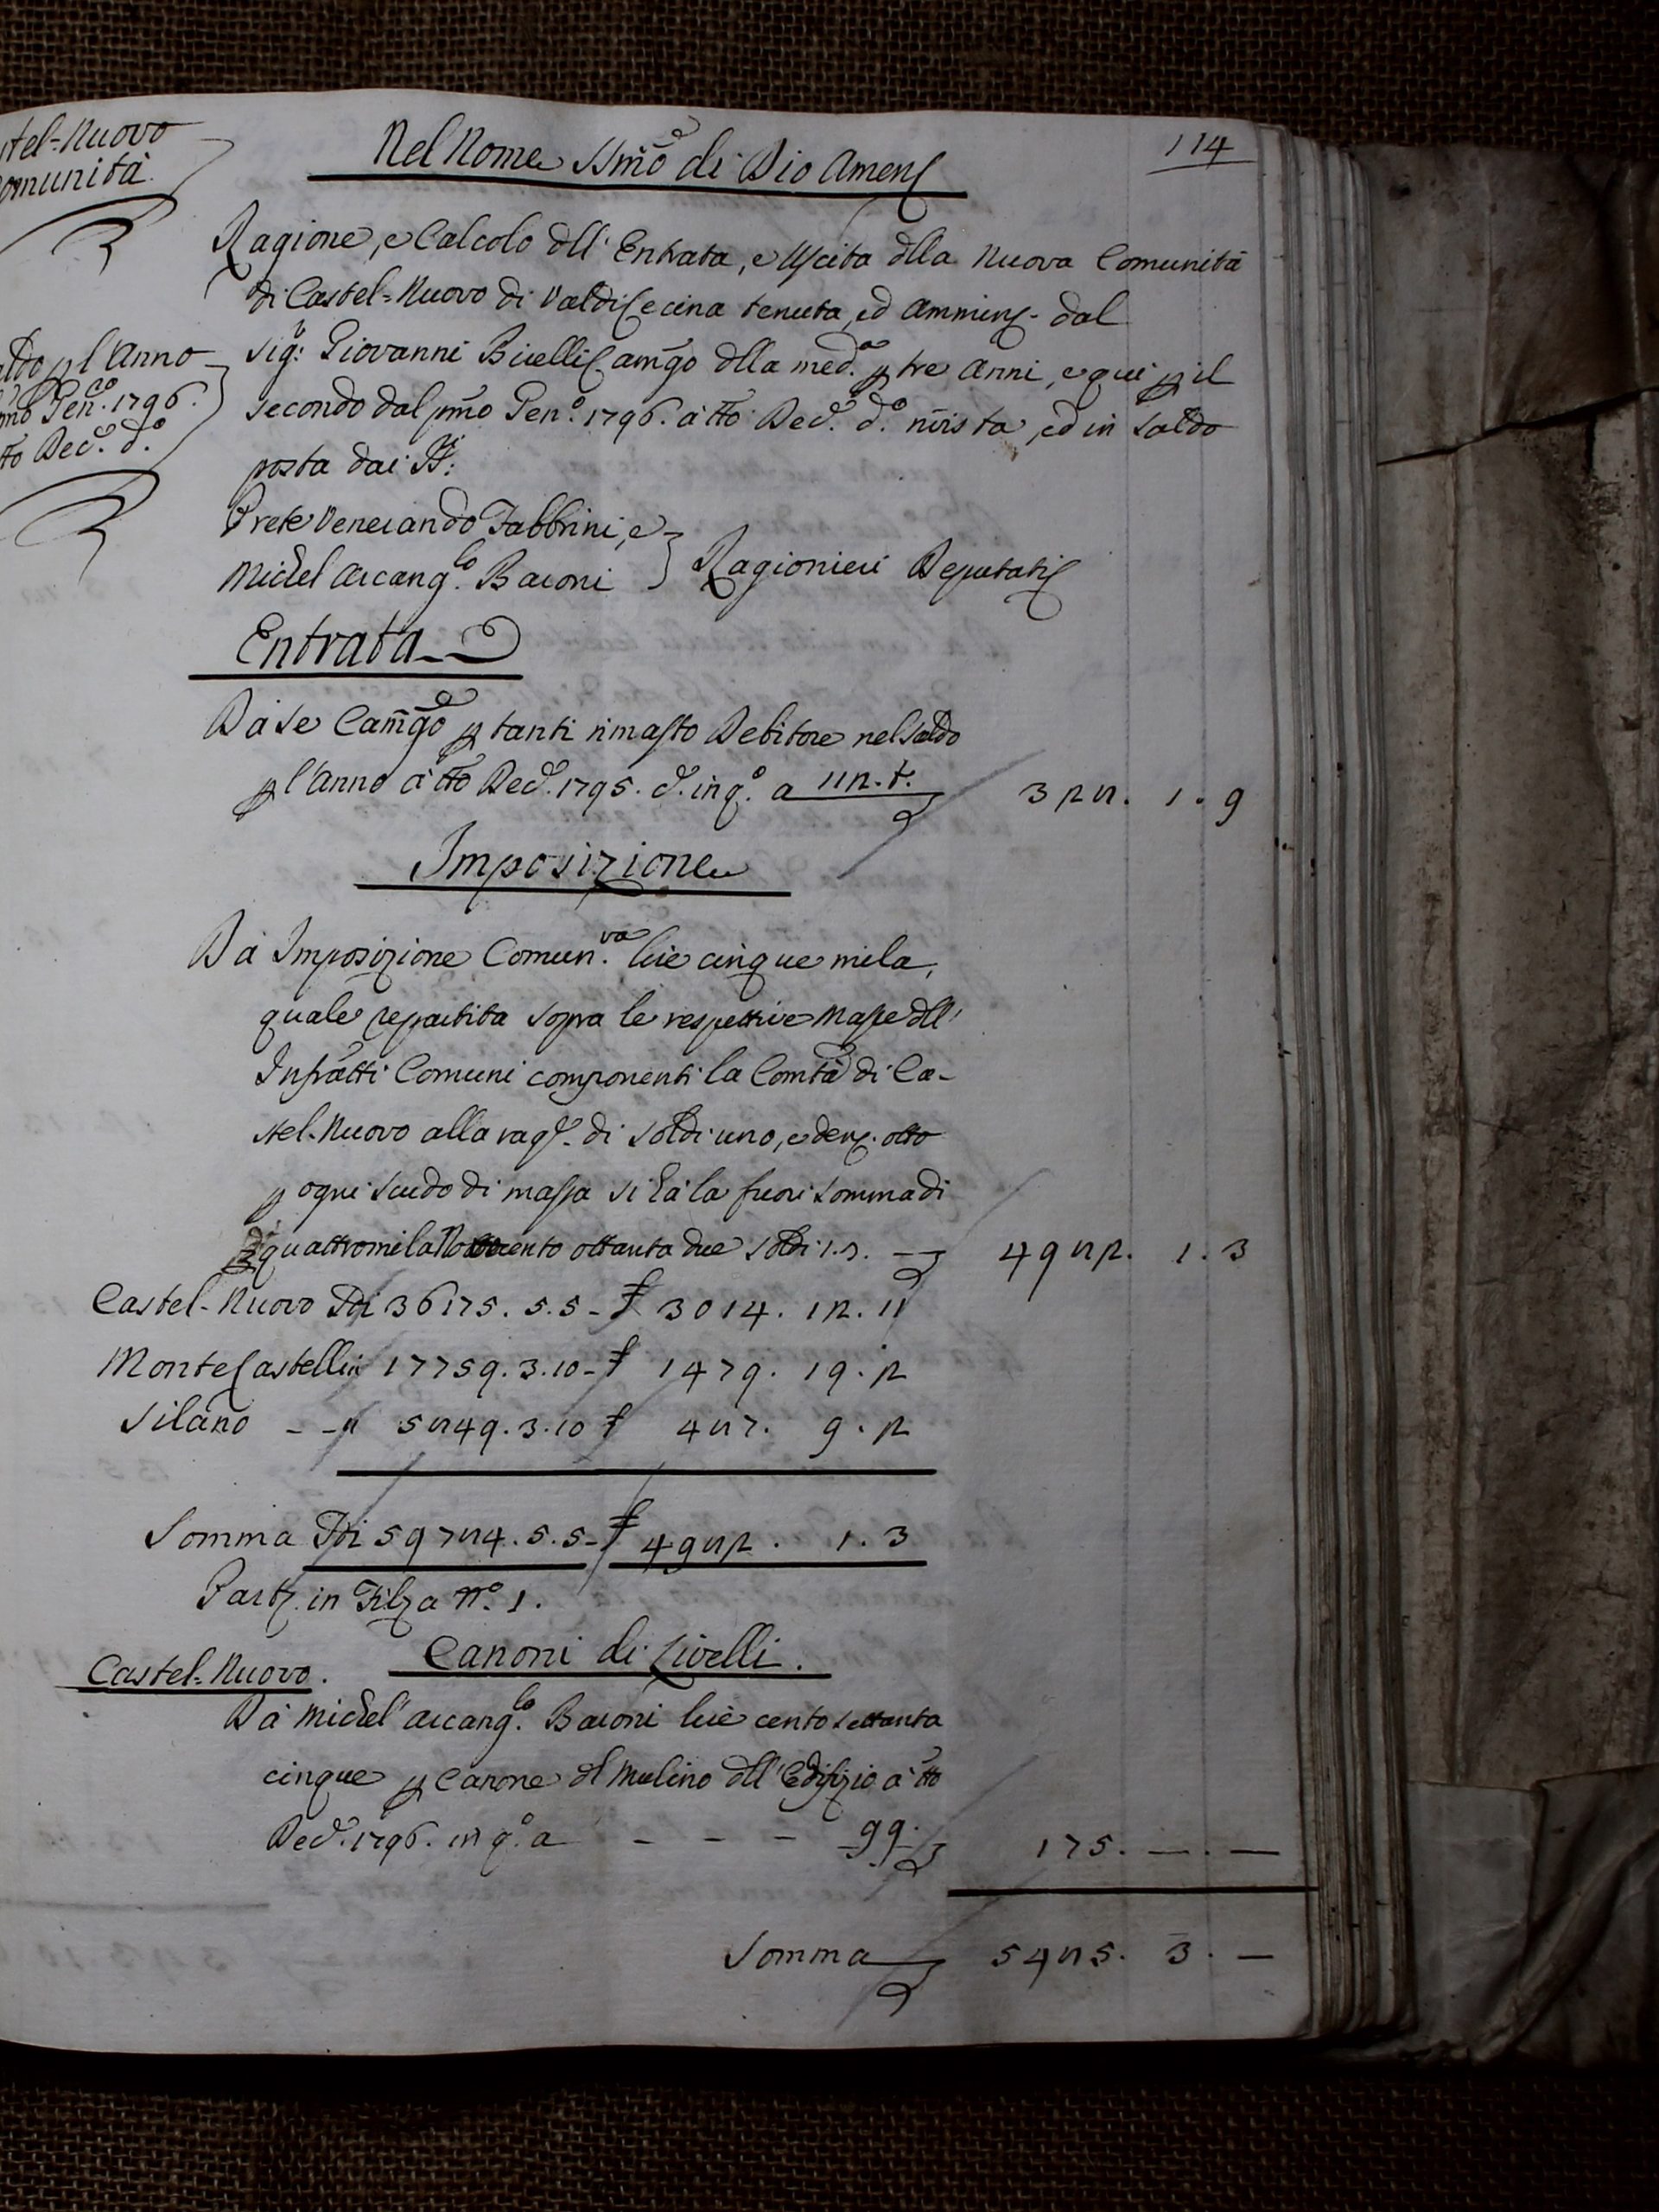 114
stel=Nuovo
omunità
Nel Nome SSmo di Dio Amen
Ragione, e Calcolo dll' Entrata, e Uscita dlla Nuova Comunità
di Castel=Nuovo di Valdicecina tenuta, ed Ammin. dal
Sig.r Giovanni Bicelli Camgo dlla med.a p tre Anni, e qui p il
secondo dal pmo Gen.o 1796. a tto Dec.e d.o rivista, ed in saldo
posta dai SS.ri
ldo pl'Anno
pmo Gen.o 1796.
tto Dec.e d.o
Prete Venerando Fabbrini, e
Michel Arcang.lo Baroni } Ragionieri Deputati
Entrata
Da se Camgo p tanti rimasto Debitore nel saldo
pl'Anno a tto Dec.e 1795. d. in q.o a 112.t. 328. 1. 9
Imposizione
Da Imposizione Comun.va lire cinque mila,
quale repartita sopra le respettive Masse dll'
Infratti Comuni componenti la Comtà di Ca-
stel-Nuovo alla rag.e di soldi uno, e den. otto
p ogni scudo di massa si hà la fuori somma di
quattromila Novecento ottanta due soldi 1.3. 4982. 1. 3
Castel-Nuovo Sdi 36175. 5. 5 - £ 3014. 12. 11
MonteCastelli 17759. 3. 10 - £ 1479. 19. 2
Silano - - " 5849. 3. 10 £ 487. 9. 2
Somma Sdi 59784. 5. 5 - £ 4982. 1. 3
Part. in Filza N.o 1.
Castel=Nuovo. Canoni di Livelli.
Da Michel'Arcang.lo Baroni lire cento settanta
cinque p Canone dl Mulino dll'Edifizio a tto
Dec.e 1796. in q.o a - - - 99. 175. — . —
Somma 5485. 3. —